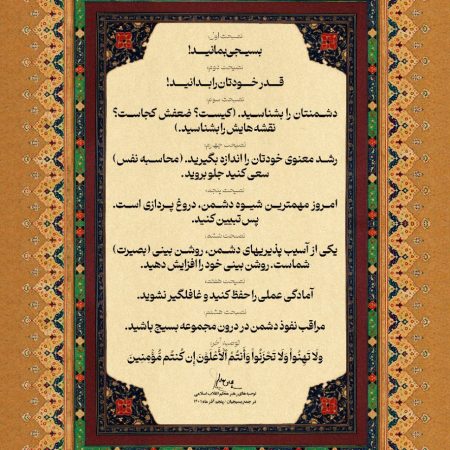 نصیحت اول:
بسیجی بمانید!
نصیحت دوم:
قدر خودتان را بدانید!
نصیحت سوم:
دشمنتان را بشناسید. (کیست؟ ضعفش کجاست؟
نقشه‌هایش را بشناسید.)
نصیحت چهارم:
رشد معنوی خودتان را اندازه بگیرید. (محاسبه نفس)
سعی کنید جلو بروید.
نصیحت پنجم:
امروز مهمترین شیوه دشمن، دروغ پردازی است.
پس تبیین کنید.
نصیحت ششم:
یکی از آسیب پذیریهای دشمن، روشن بینی (بصیرت)
شماست. روشن بینی خود را افزایش دهید.
نصیحت هفتم:
آمادگی عملی را حفظ کنید و غافلگیر نشوید.
نصیحت هشتم:
مراقب نفوذ دشمن در درون مجموعه بسیج باشید.
توصیه آخر:
وَلَا تَهِنُوا وَلَا تَحْزَنُوا وَأَنتُمُ الْأَعْلَوْنَ إِن كُنتُم مُّؤْمِنِينَ
توصیه‌های رهبر معظم انقلاب اسلامی
در جمع بسیجیان - پنجم آذر ماه ۱۴۰۱